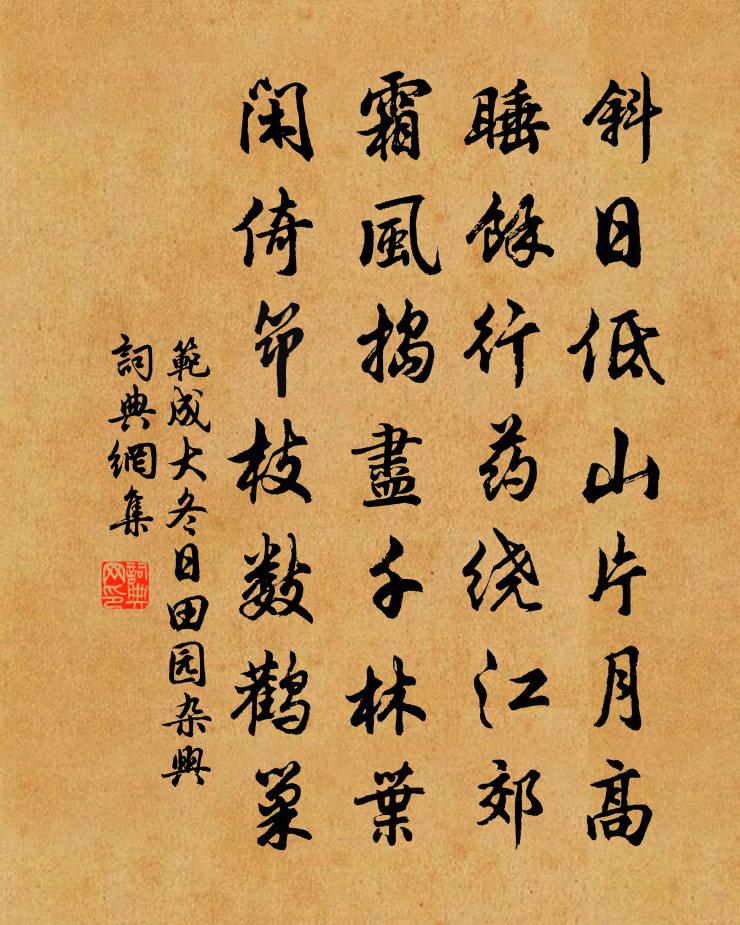 斜日低山片月高
睡餘行药绕江郊
霜風搗盡千林葉
闲倚筇枝数鹳巢
範成大冬日田园杂興
詞典網集
詞典网印